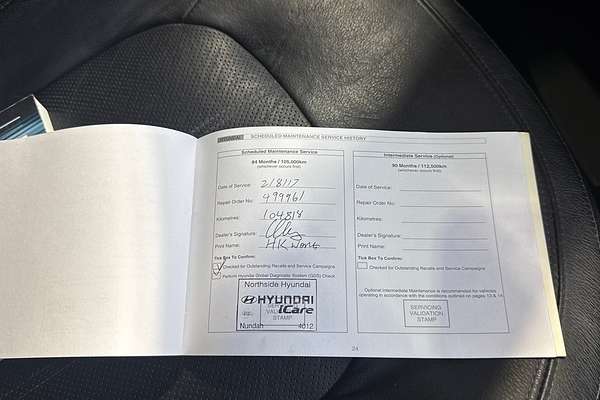 HYUNDAI SCHEDULED MAINTENANCE SERVICE HISTORY
Scheduled Maintenance Service
84 Months / 105,000km
(whichever occurs first)
Date of Service: 2/8/17
Repair Order No: 499961
Kilometres: 104818
Dealer's Signature:
Print Name: HK Wong
Tick Box To Confirm:
Checked for Outstanding Recalls and Service Campaigns
Perform Hyundai Global Diagnostic System (GDS) Check
Northside Hyundai
HYUNDAI
iCare
SERVICING
VALIDATION
STAMP
Nundah 4012
Intermediate Service (Optional)
90 Months / 112,500km
(whichever occurs first)
Date of Service:
Repair Order No:
Kilometres:
Dealer's Signature:
Print Name:
Tick Box To Confirm:
Checked for Outstanding Recalls and Service Campaigns
Optional Intermediate Maintenance is recommended for vehicles
operating in accordance with the conditions outlined on pages 13 & 14.
SERVICING
VALIDATION
STAMP
24